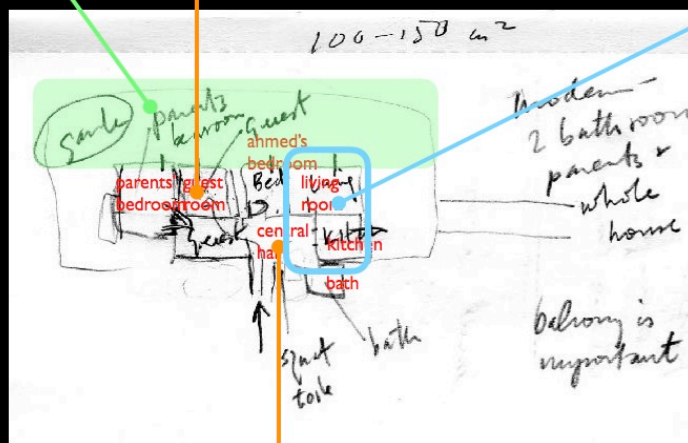 100-150 m²
garde
parents
bedroom
guest
ahmed's
bedroom
parents'
bedroom
guest
room
Bed
living
room
Living
guest
central
hall
kitchen
bath
squat
bath
modern -
2 bathroom
parents +
whole
house
balcony is
important